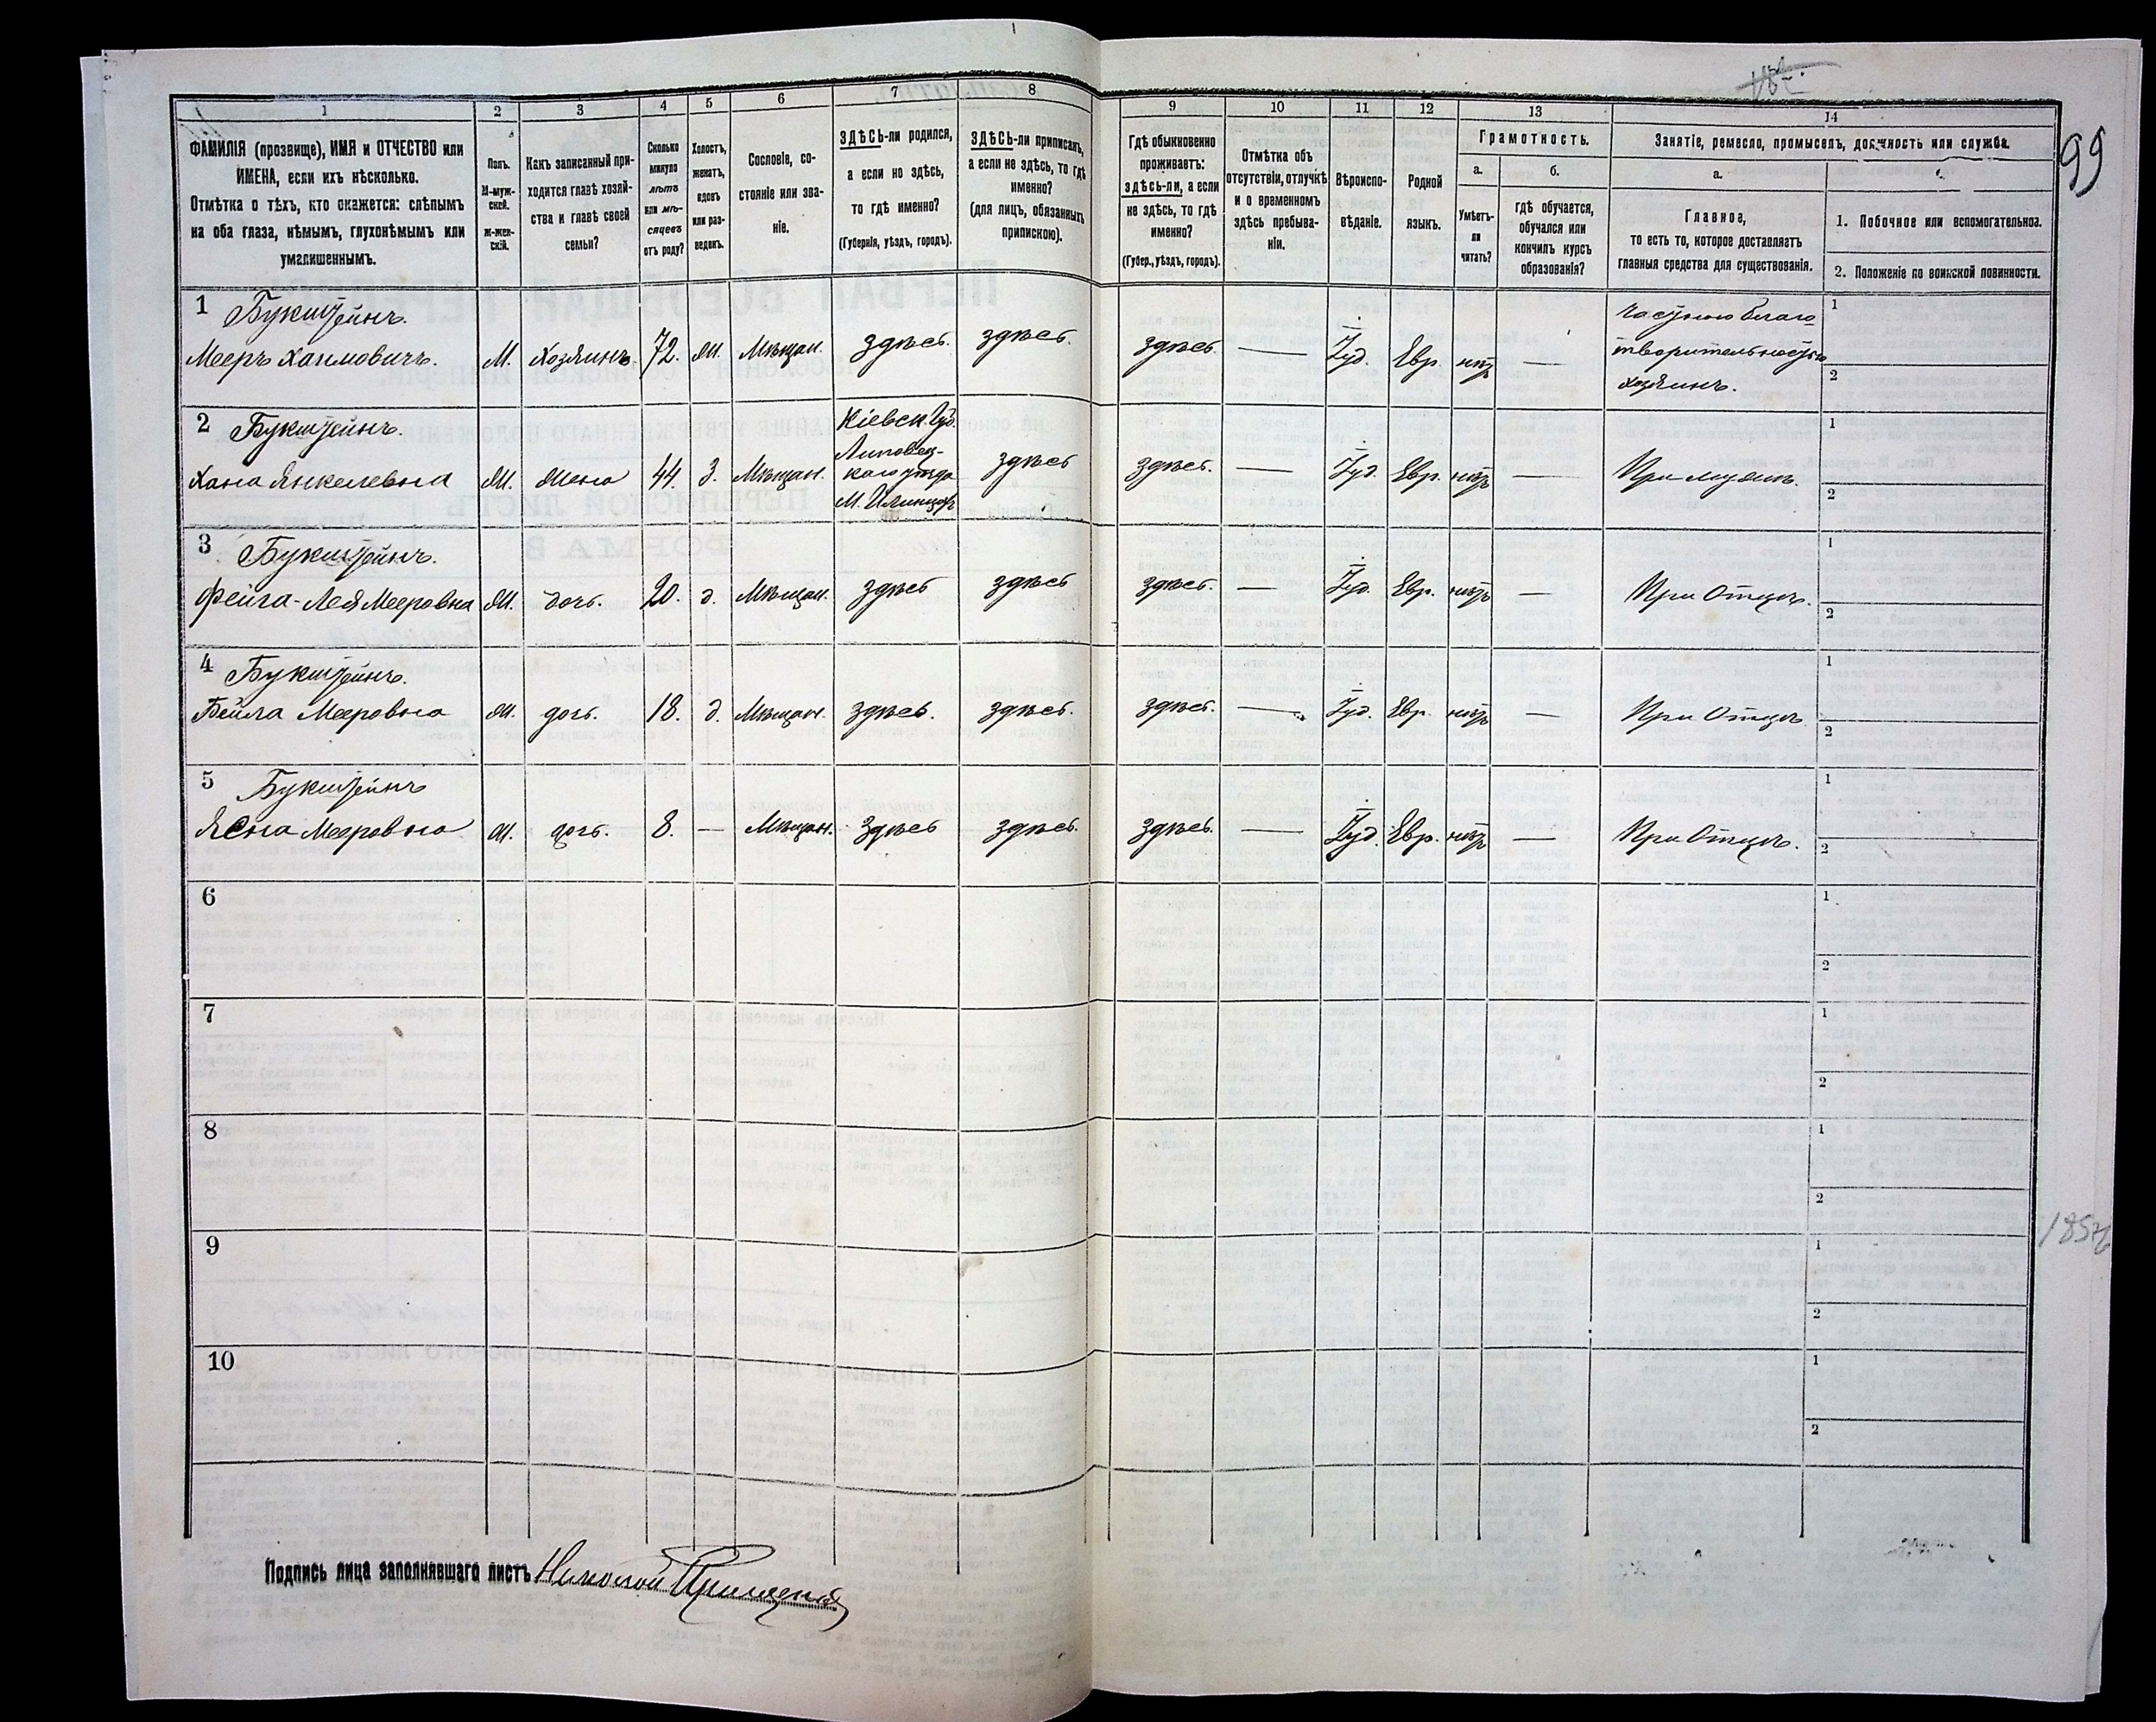 99
1 2 3 4 5 6 7 8 9 10 11 12 13 14
ФАМИЛІЯ (прозвище), ИМЯ и ОТЧЕСТВО или
ИМЕНА, если ихъ нѣсколько.
Отмѣтка о тѣхъ, кто окажется: слѣпымъ
на оба глаза, нѣмымъ, глухонѣмымъ или
умалишеннымъ.
Полъ.
М-муж-
ской.
Ж-жен-
скій.
Какъ записанный при-
ходится главѣ хозяй-
ства и главѣ своей
семьи?
Сколько
минуло
лѣтъ
или мѣ-
сяцевъ
отъ роду?
Холостъ,
женатъ,
вдовъ
или раз-
веденъ.
Сословіе, со-
стояніе или зва-
ніе.
ЗДѢСЬ-ли родился,
а если не здѣсь,
то гдѣ именно?
(Губернія, уѣздъ, городъ).
ЗДѢСЬ-ли приписанъ,
а если не здѣсь, то гдѣ
именно?
(для лицъ, обязанныхъ
припискою).
Гдѣ обыкновенно
проживаетъ:
здѣсь-ли, а если
не здѣсь, то гдѣ
именно?
(Губер., уѣздъ, городъ).
Отмѣтка объ
отсутствіи, отлучкѣ
и о временномъ
здѣсь пребыва-
ніи.
Вѣроиспо-
вѣданіе.
Родной
языкъ.
Грамотность.
а.
Умѣетъ-
ли
читать?
б.
гдѣ обучается,
обучался или
кончилъ курсъ
образованія?
Занятіе, ремесло, промыселъ, должность или служба.
а.
Главное,
то есть то, которое доставляетъ
главныя средства для существованія.
1. Побочное или вспомогательное.
2. Положеніе по воинской повинности.
1 Букштейнъ.
Мееръ Хаимовичъ. М. Хозяинъ 72. Ж. Мѣщан. здѣсь. здѣсь. здѣсь — Іуд. Евр. нѣтъ —
Частною благо
творительностью
хозяинъ.
1
2
2 Букштейнъ.
Хана Янкелевна Ж. Жена 44. З. Мѣщан.
Кіевск. Губ.
Липовец-
каго уѣзда
М. Илинцовъ
здѣсь здѣсь. — Іуд. Евр. нѣтъ — При мужѣ.
1
2
3 Букштейнъ.
Фейга-Лея Мееровна Ж. дочь. 20. д. Мѣщан. здѣсь здѣсь здѣсь. — Іуд. Евр. нѣтъ — При Отцѣ.
1
2
4 Букштейнъ.
Бейла Мееровна Ж. дочь. 18. д. Мѣщан. здѣсь. здѣсь. здѣсь. — Іуд. Евр. нѣтъ — При Отцѣ.
1
2
5 Букштейнъ
Мееровна Ж. дочь. 8. — Мѣщан. здѣсь здѣсь. здѣсь. — Іуд. Евр. нѣтъ — При Отцѣ.
1
2
6
1
2
7
1
2
8
1
2
9
1
2
10
1
2
Подпись лица заполнявшаго листъ Николай